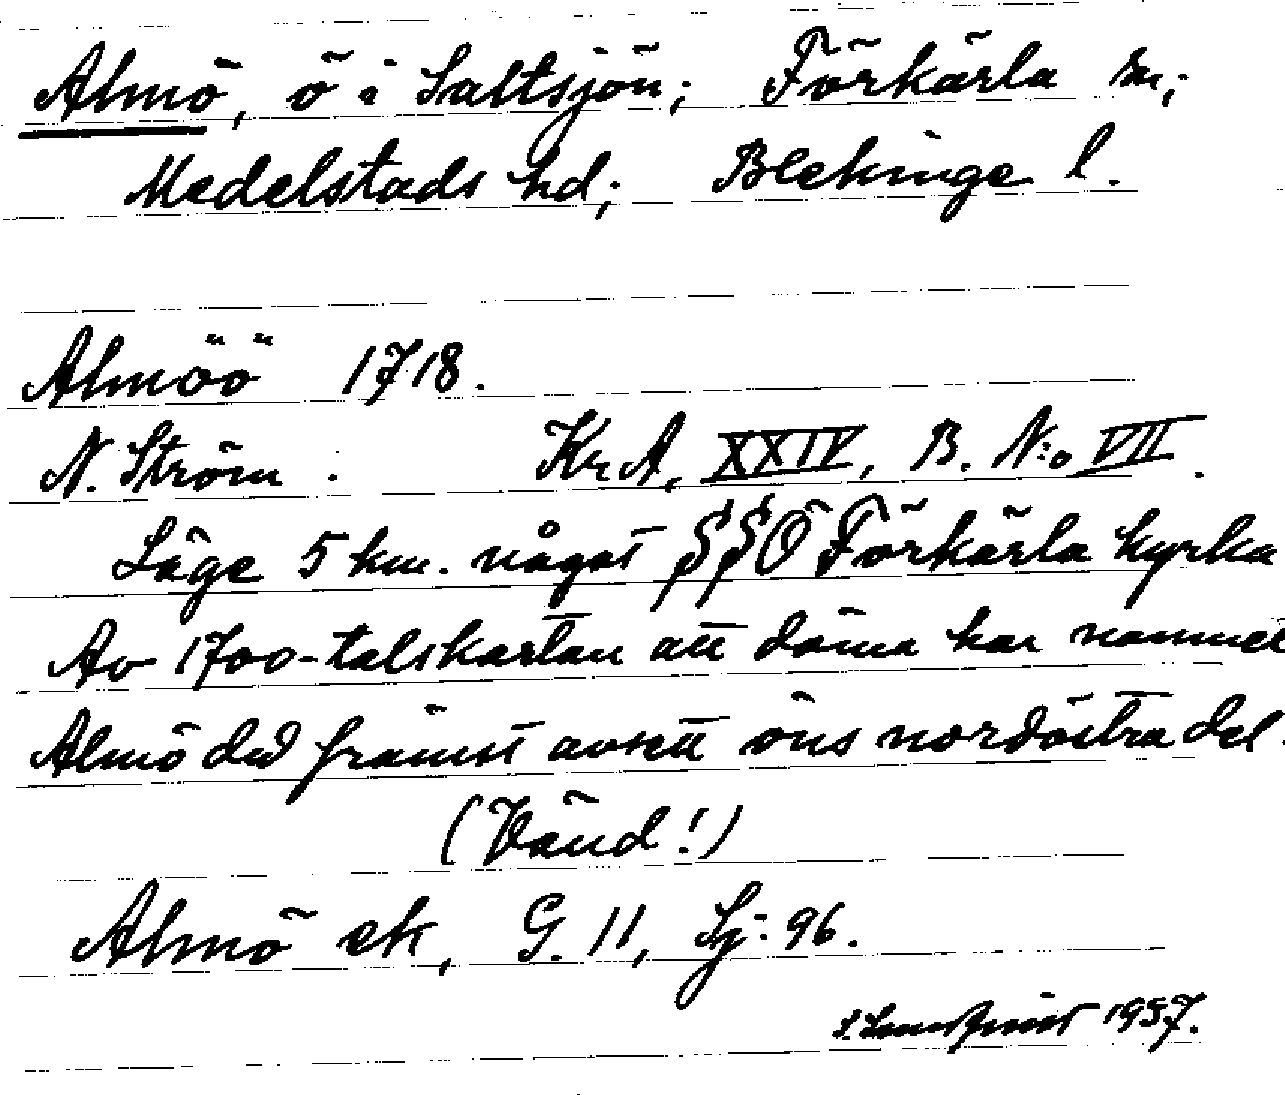 Almö, ö i Saltsjön; Förkärla sn;
Medelstads hd; Blekinge l.
Almöö 1718.
N. Ström. KrA, XXIV, B. N:o VII.
Läge 5 km. något SSÖ Förkärla kyrka
Av 1700-talskartan att döma har namnet
Almö då främst avsett öns nordöstra del.
(Vänd!)
Almö ek, G. 11, Sj: 96.
1957.